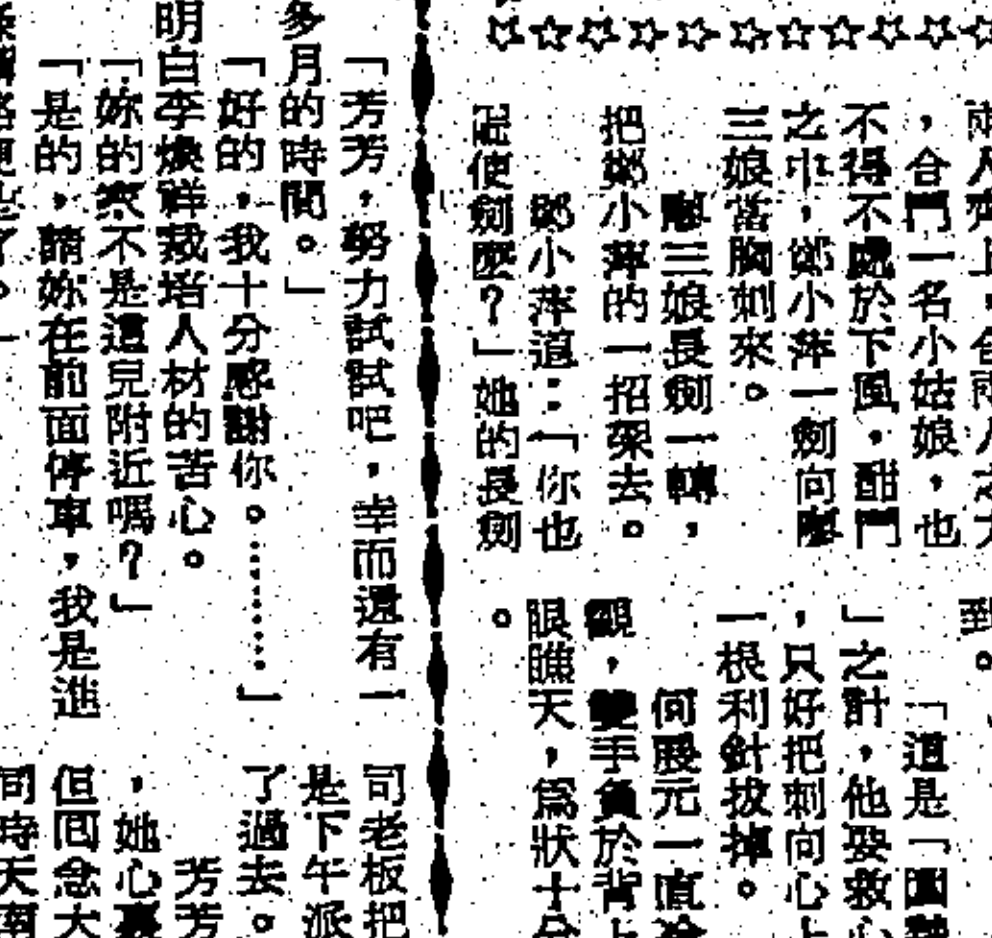 兩人齊上，合兩人之力
，合鬥一名小姑娘，也
不得不處於下風，酣鬥
之中，鄭小萍一劍向廖
三娘當胸刺來。
廖三娘長劍一轉，
把鄭小萍的一招架去。
鄭小萍道：「你也
配使劍麼？」她的長劍
到。」
「這是「圍
」之計，他要救心
，只好把刺向心上
一根利針拔掉。
何展元一直冷
觀，雙手負於背上
眼瞧天，爲狀十分
。
「芳芳，努力試試吧，幸而還有一
多月的時間。」
「好的，我十分感謝你。………」
明白李煥祥栽培人材的苦心。
「妳的家不是這兒附近嗎？」
「是的，請妳在前面停車，我是進
司老板把
是下午派
了過去。
芳芳
，她心裏
但回念大
同時天南